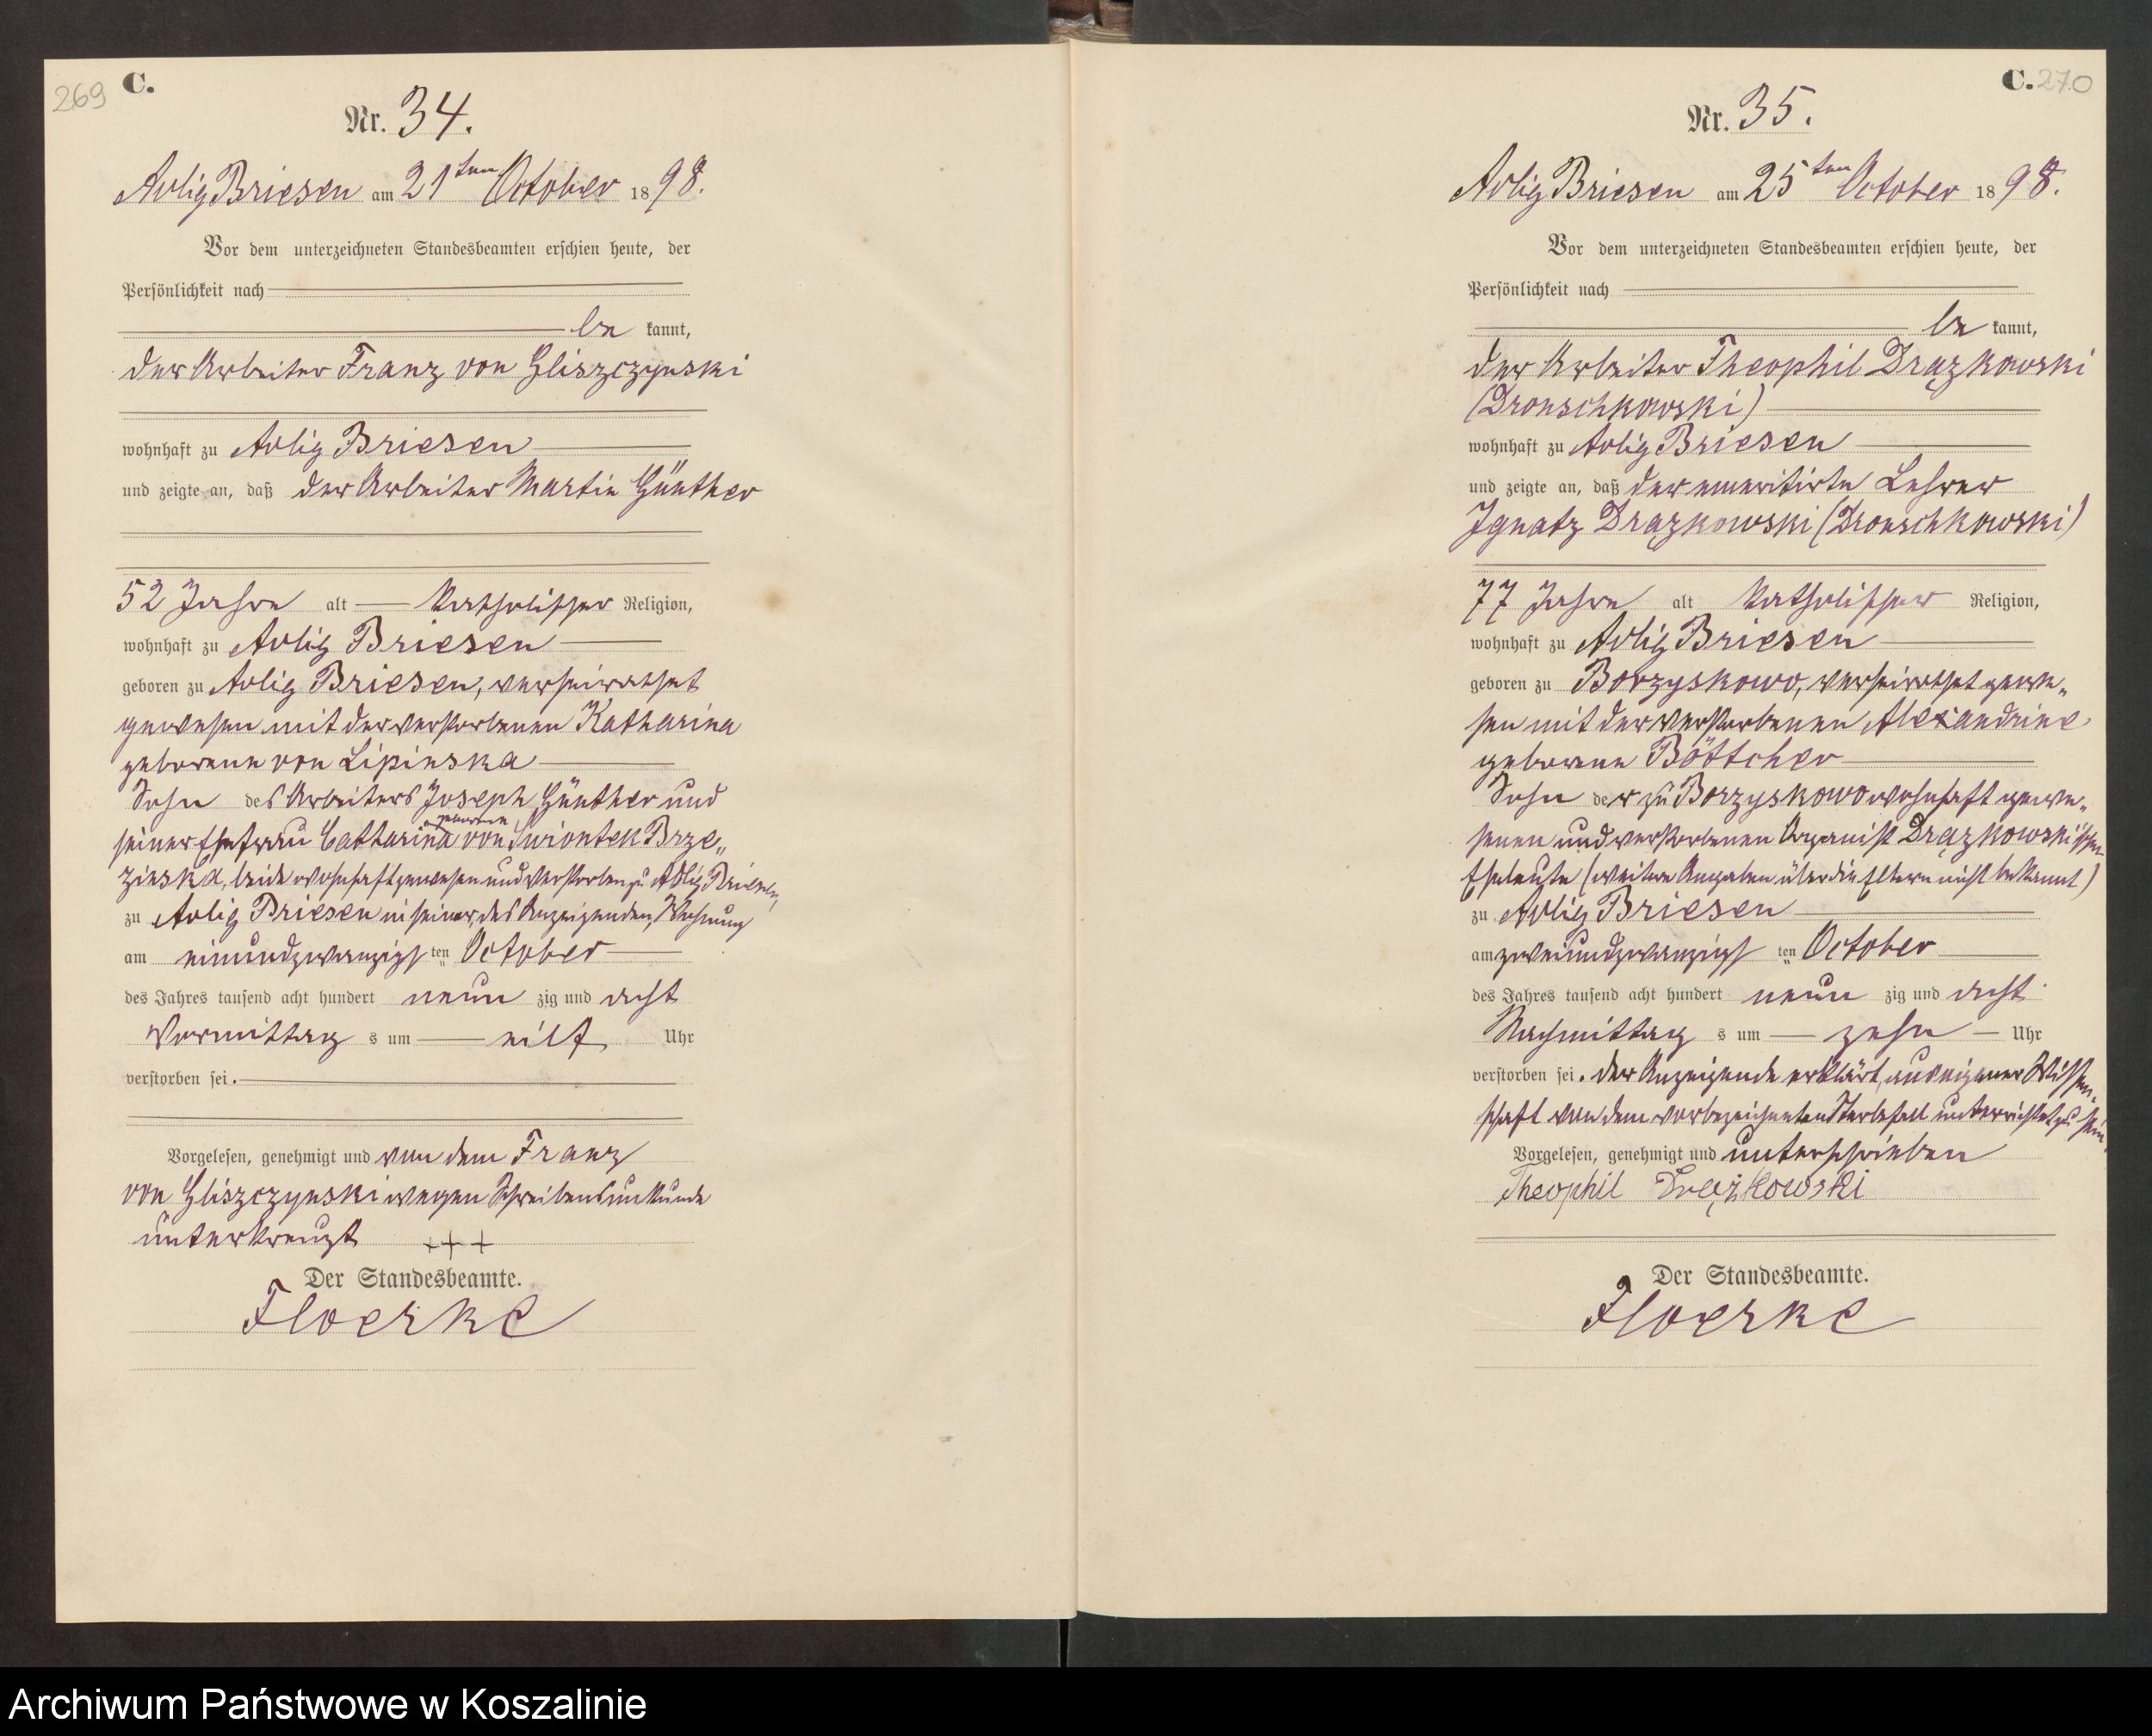 269
C.
Nr. 34.
Adlig Briesen am 21ten October 1898.
Vor dem unterzeichneten Standesbeamten erschien heute, der
Persönlichkeit nach
be kannt,
der Arbeiter Franz von Gliszczynski
wohnhaft zu Adlig Briesen
und zeigte an, daß der Arbeiter Martin Günther
52 Jahre alt katholischer Religion,
wohnhaft zu Adlig Briesen
geboren zu Adlig Briesen, verheirathet
gewesen mit der verstorbenen Katharina
geborene von Lipinska
Sohn des Arbeiters Joseph Günther und
seiner Ehefrau Catharina geborene von Swiontek Brze„
zinska, beide wohnhaft gewesen und verstorben zu Adlig Briesen,
zu Adlig Briesen in seiner, des Anzeigenden, Wohnung
am einundzwanzigsten October
des Jahres tausend acht hundert neun zig und acht
Vormittag s um eilf Uhr
verstorben sei.
Vorgelesen, genehmigt und von dem Franz
von Gliszczynski wegen Schreibensunkunde
unterkreuzt +++
Der Standesbeamte.
Floerke
C. 270
Nr. 35.
Adlig Briesen am 25ten October 1898.
Vor dem unterzeichneten Standesbeamten erschien heute, der
Persönlichkeit nach
be kannt,
der Arbeiter Theophil Drązkowski
(Dronschkowski)
wohnhaft zu Adlig Briesen
und zeigte an, daß der emeritirte Lehrer
Ignatz Drązkowski (Dronschkowski)
77 Jahre alt katholischer Religion,
wohnhaft zu Adlig Briesen
geboren zu Borzyskowo, verheirathet gewe„
sen mit der verstorbenen Alexandrine
geborene Böttcher
Sohn der zu Borzyskowo wohnhaft gewe„
senen und verstorbenen Organist Drązkowski'schen
Eheleute (weitere Angaben über die Eltern nicht bekannt)
zu Adlig Briesen
am zweiundzwanzigsten October
des Jahres tausend acht hundert neun zig und acht
Nachmittag s um zehn Uhr
verstorben sei. Der Anzeigende erklärt, aus eigener Wissen„
schaft von dem vorbezeichneten Sterbefall unterrichtet zu sein.
Vorgelesen, genehmigt und unterschrieben
Theophil Drążkowski
Der Standesbeamte.
Floerke
Archiwum Państwowe w Koszalinie